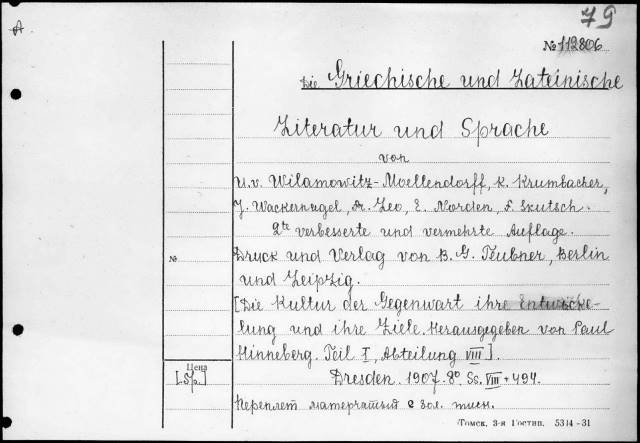 A
79
№ 112806
Die Griechische und Lateinische
Literatur und Sprache
von
U.v. Wilamowitz-Moellendorff, K. Krumbacher,
J. Wackernagel, Fr. Leo, E. Norden, F. Skutsch.
2te verbesserte und vermehrte Auflage.
№
Druck und Verlag von B. G. Teubner, Berlin
und Leipzig.
[Die Kultur der Gegenwart ihre Entwicke-
lung und ihre Ziele. Herausgegeben von Paul
Hinneberg. Teil I, Abteilung VIII].
Цена
Dresden. 1907. 8º. Ss. VIII + 494.
Переплет матерчатый с зол. тисн.
Томск, 3-я Гостип. 5314-31